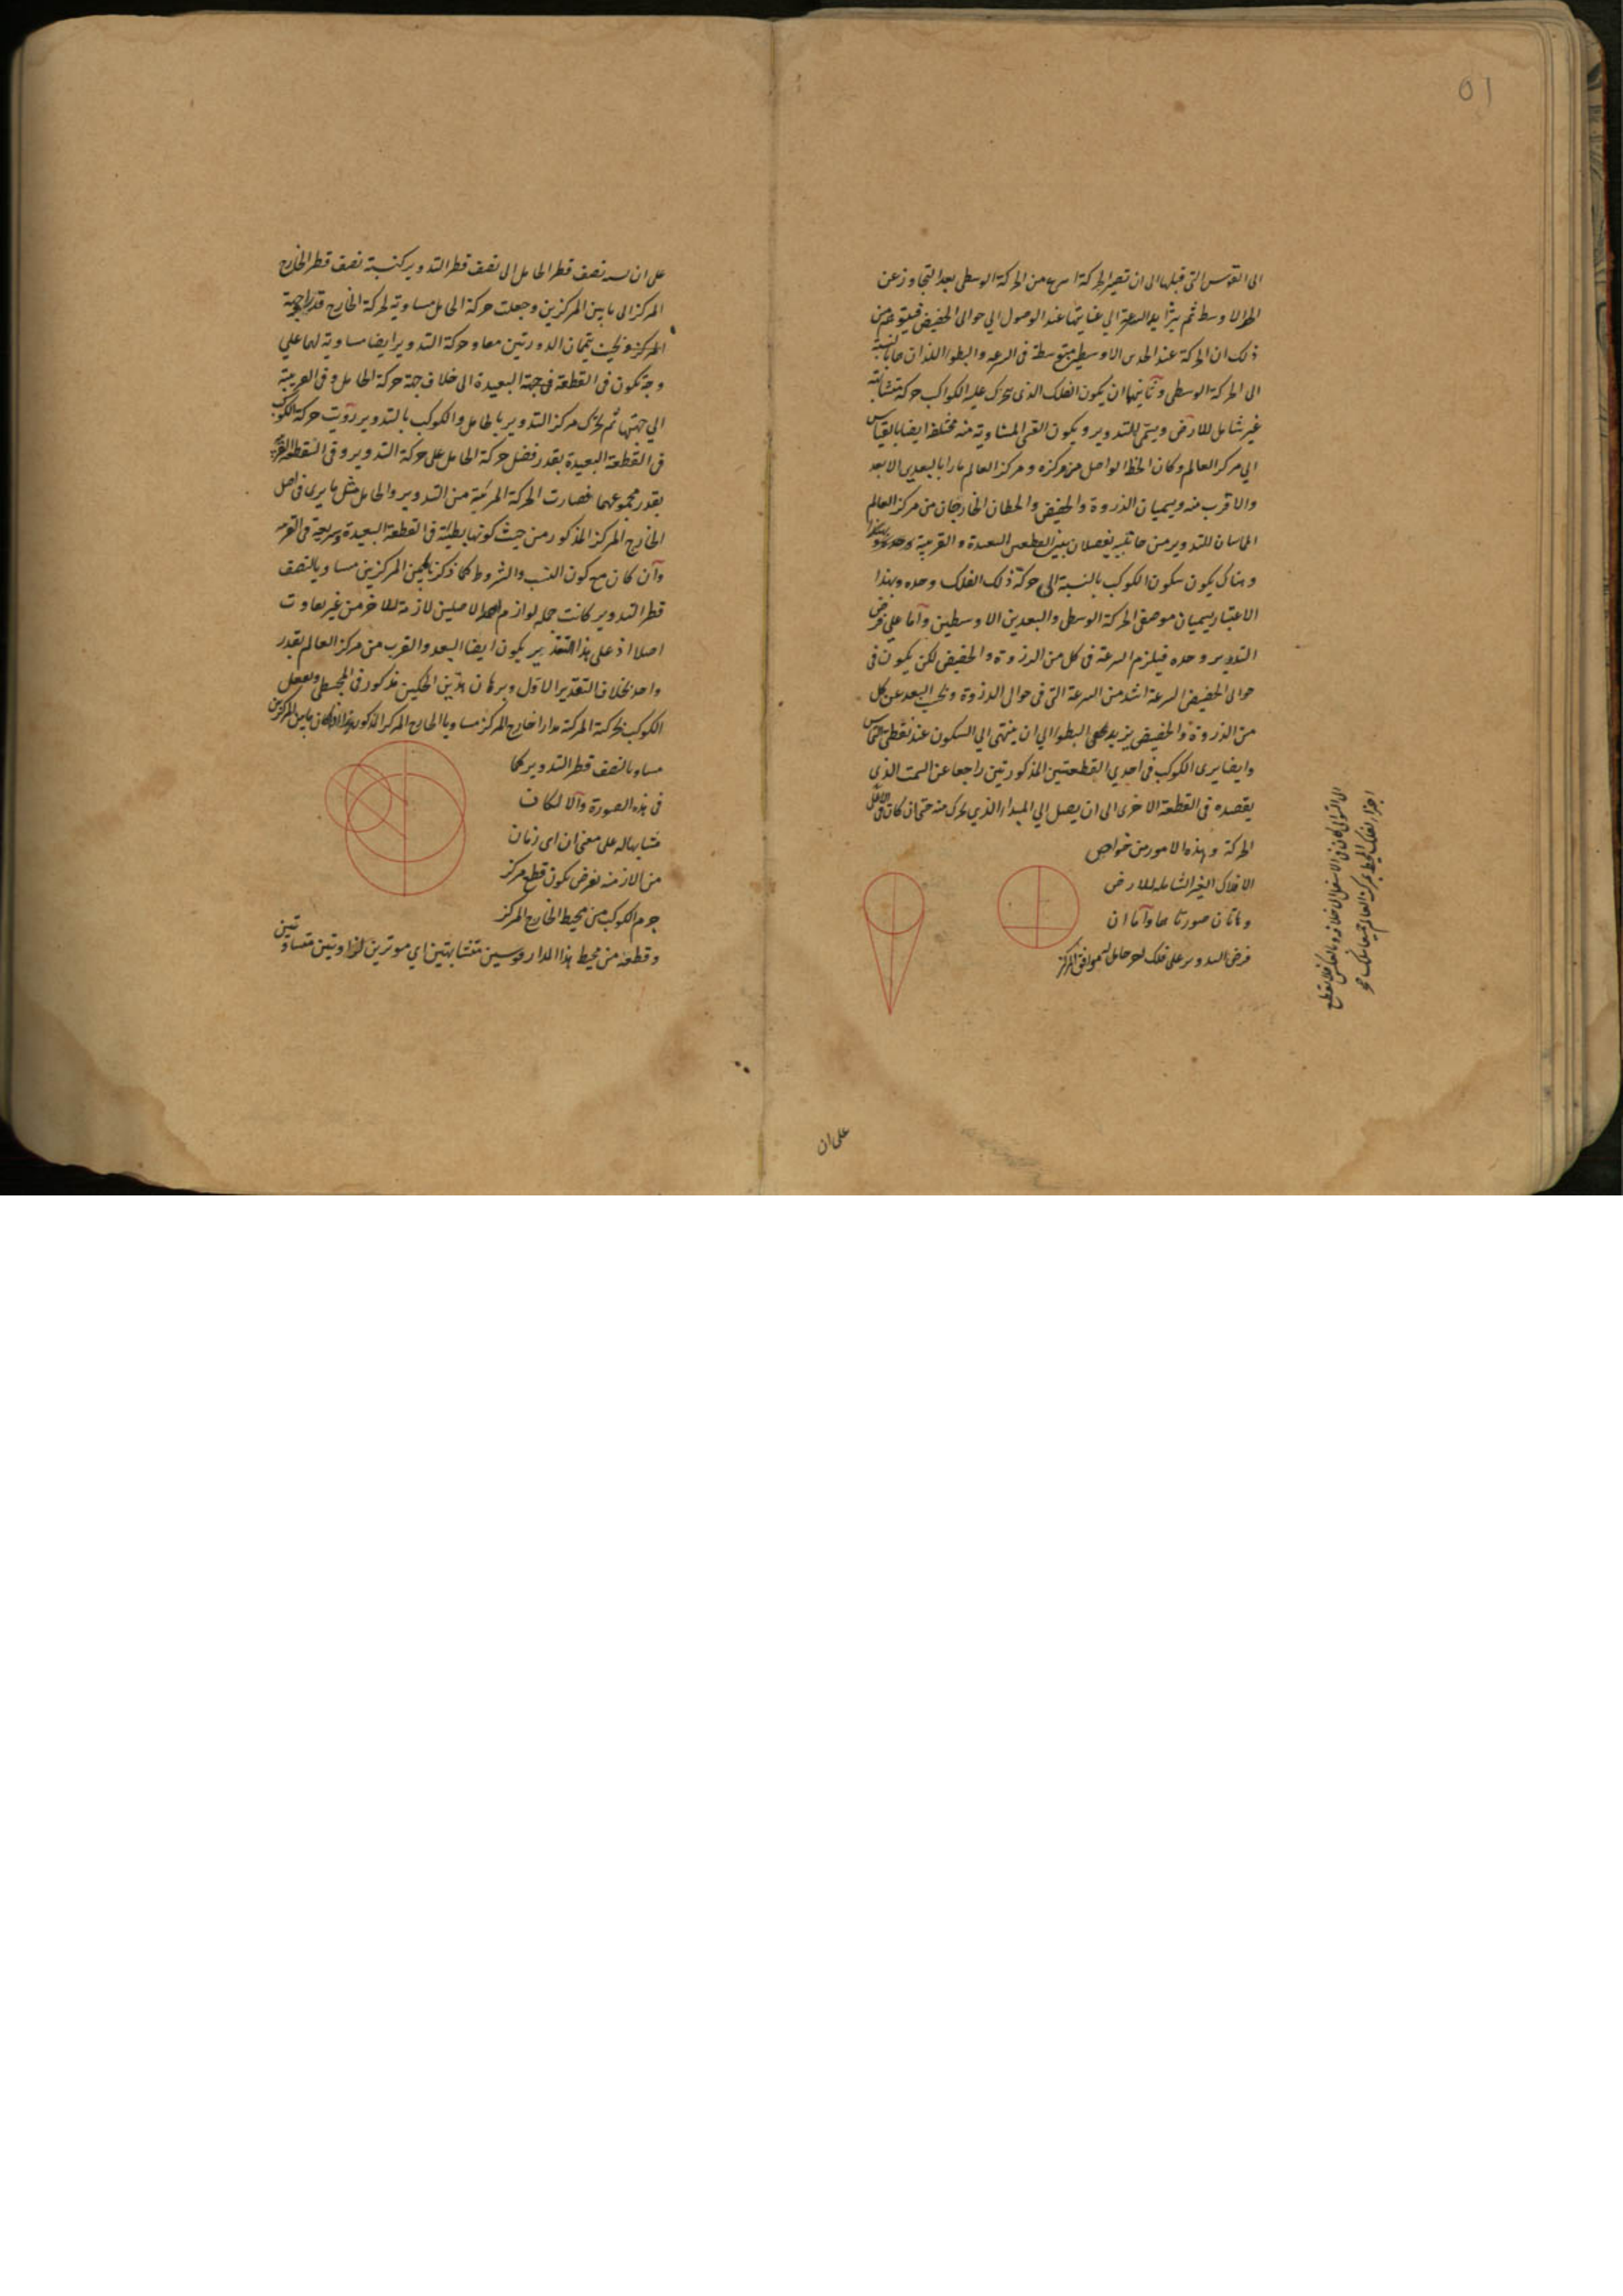 ٥١
الى القوس التى قبلها الى ان تصير الحركة اسرع من الحركة الوسطى بعد التجاوز عن
الاوسط ثم يتزايد السرعة الى غايتها عند الوصول الى حوالى الحضيض فيتوهم من
ذلك ان الحركة عند الاوسط متوسطة فى السرعة والبطوء اللذان هما بالنسبة
الى الحركة الوسطى وثانيها ان يكون الفلك الذى تحرك عليه الكواكب حركة متشابهة
غير شامل للارض ويسمى بالتدوير ويكون القسى المتساوية منه مختلفة ايضا بالقياس
الى مركز العالم وكان الخط الواصل من مركزه ومركز العالم مارا بالبعدين الابعد
والاقرب منه ويسميان الذروة والحضيض والخطان الخارجان من مركز العالم
المماسان للتدوير من جانبيه يفصلان بين القطعتين البعيدة والقريبة
وهناك يكون سكون الكوكب بالنسبة الى حركة ذلك الفلك وحده وبهذا
الاعتبار يسميان موضعى الحركة الوسطى والبعدين الاوسطين وآما على فرض
التدوير وحده فيلزم السرعة فى كل من الذروة والحضيض لكن يكون فى
حوالى الحضيض السرعة اشد من السرعة التى فى حوالى الذروة وبحسب البعد عن كل
من الذروة والحضيض يزيد البطوء الى ان ينتهى الى السكون عند نقطتى التماس
وايضا يرى الكوكب فى احدى القطعتين المذكورتين راجعا عن السمت الذى
يقصده فى القطعة الاخرى الى ان يصل الى المبدا الذى تحرك منه حتى ان كان فى الاعلى
الحركة وهذه الامور من خواص
الافلاك الغير الشاملة للارض
وهاتان صورتاهما وآما ان
فرض التدوير على فلك اخر حامل له موافق المركز
الى التوالى كان فى الاسفل الى خلافه وبالعكس
اجزاء الفلك المحيط بمركز العالم جميعا
على ان
على ان نسبة نصف قطر الحامل الى نصف قطر التدوير كنسبة نصف قطر الخارج
المركز الى ما بين المركزين وجعلت حركة الحامل مساوية لحركة الخارج قدرا وجهة
بحيث يتمان الدورتين معا وحركة التدوير ايضا مساوية لهما على
وجه يكون فى القطعة البعيدة الى خلاف جهة حركة الحامل وفى القريبة
الى جهتها ثم تحرك مركز التدوير بالحامل والكوكب بالتدوير رؤيت حركة الكوكب
فى القطعة البعيدة بقدر فضل حركة الحامل على حركة التدوير وفى القطعة القريبة
بقدر مجموعهما فصارت الحركة المرئية من التدوير والحامل مثل ما يرى فى اصل
الخارج المركز المذكور من حيث كونها بطيئة فى القطعة البعيدة وسريعة فى القريبة
وآن كان مع كون النسب والشروط كما ذكر ما بين المركزين مساويا لنصف
قطر التدوير كانت جملة لوازم احد الاصلين لازمة للاخر من غير تفاوت
اصلا اذ على هذا التقدير يكون ايضا البعد والقرب من مركز العالم بقدر
واحد بخلاف التقدير الاول وبرهان هذين الحكمين مذكور فى المجسطى ويفعل
الكوكب بحركته المركبة مدارا خارج المركز مساويا للخارج المركز المذكور هذا اذا كان ما بين المركزين
مساويا لنصف قطر التدوير كما
فى هذه الصورة وآلا لكان
متشابها له على معنى ان اى زمان
من الازمنة يفرض يكون قطع مركز
جرم الكوكب من محيط الخارج المركز
وقطعه من محيط هذا المدار قوسين متشابهتين اى موترين لزاويتين متساويتين